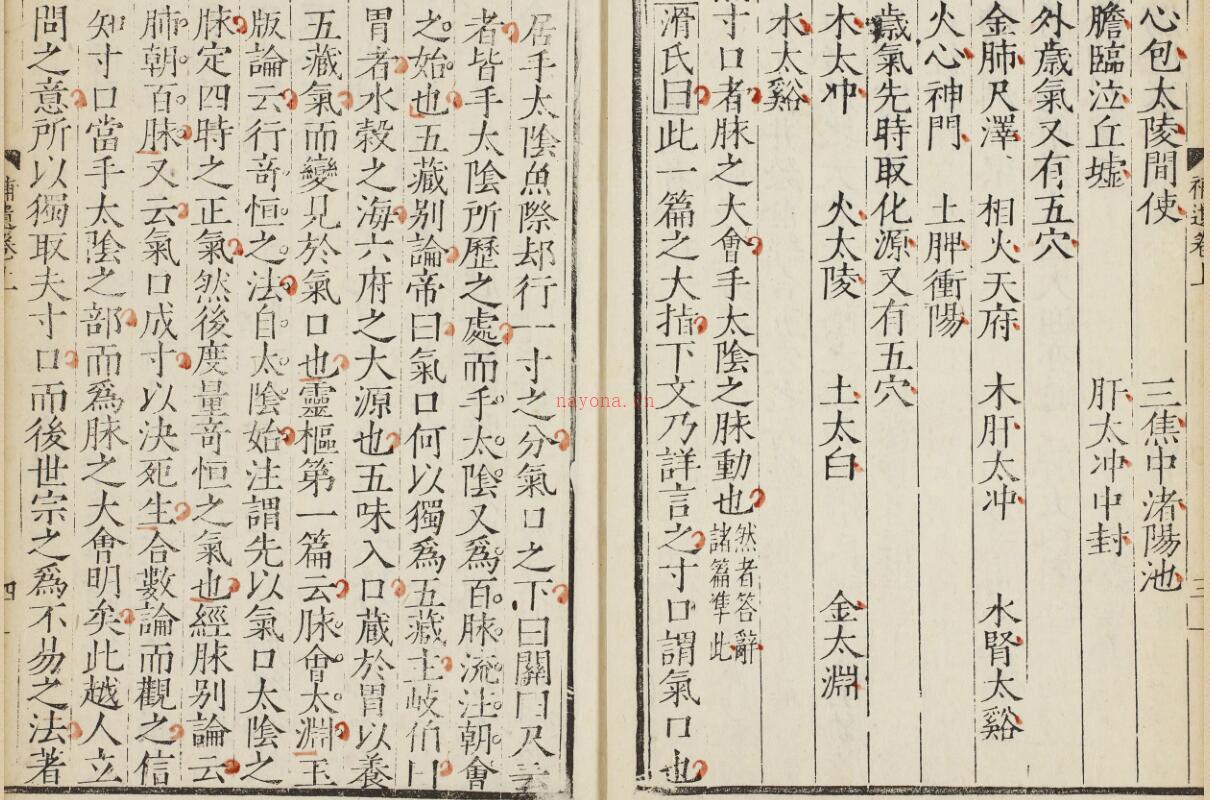 心包太陵間使　三焦中渚陽池
膽臨泣丘墟　肝太冲中封
外歲氣又有五穴
金肺尺澤　相火天府　木肝太冲　水腎太谿
火心神門　土脾衝陽
歲氣先時取化源又有五穴
木太冲　火太陵　土太白　金太淵
水太谿
寸口者脉之大會手太陰之脉動也然者答辭諸篇準此
滑氏曰此一篇之大指下文乃詳言之寸口謂氣口也
居手太陰魚際却行一寸之分氣口之下曰關曰尺云
者皆手太陰所歷之處而手太陰又爲百脉流注朝會
之始也五藏别論帝曰氣口何以獨爲五藏主岐伯曰
胃者水穀之海六府之大源也五味入口藏於胃以養
五藏氣而變見於氣口也靈樞第一篇云脉會太淵玉
版論云行竒恒之法自太陰始注謂先以氣口太陰之
脉定四時之正氣然後度量竒恒之氣也經脉别論云
肺朝百脉又云氣口成寸以决死生合數論而觀之信
知寸口當手太陰之部而爲脉之大會明矣此越人立
問之意所以獨取夫寸口而後世宗之爲不易之法著
補遺卷上
三
補遺卷上
四
nayona.cn